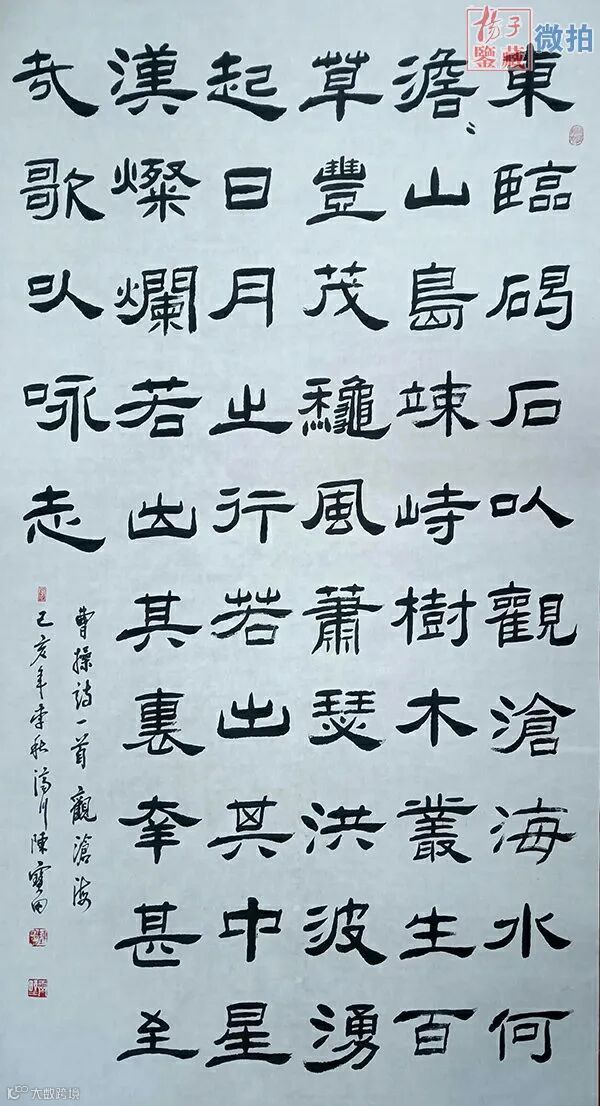 楊子
鑒藏
微拍
東臨碣石以觀滄海水何
澹〻山島竦峙樹木叢生百
草豐茂龝風蕭瑟洪波湧
起日月之行若出其中星
漢燦爛若出其裏幸甚至
哉歌以咏志
曹操詩一首觀滄海
己亥年季秋川陳寶田
大数跨境